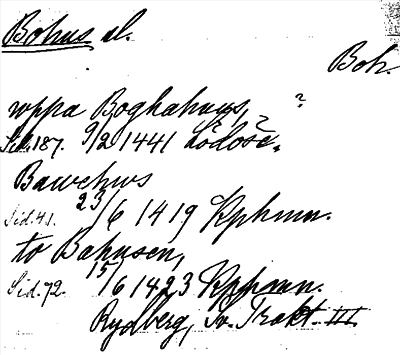 Bohus sl.
Boh.
uppa Boghahuus, ?
Sid. 187. 9/2 1441 Lödöse.
Bawehws
Sid. 41. 23/6 1419 Kphmn.
to Bahusen,
Sid. 72. 15/6 1423 Kpmn.
Rydberg, Sv. Trakt. III